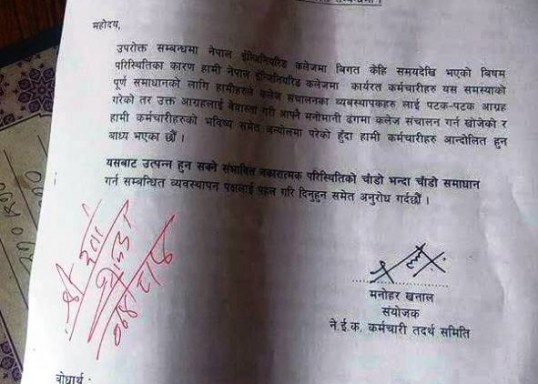 महोदय,
उपरोक्त सम्बन्धमा नेपाल ईन्जिनियरिङ कलेजमा बिगत केहि समयदेखि भएको बिषम
परिस्थितिका कारण हामी नेपाल ईन्जिनियरिङ कलेजमा कार्यरत कर्मचारीहरु यस समस्याको
पूर्ण समाधानको लागि हामीहरुले कलेज संचालनका व्यवस्थापकहरु लाई पटक-पटक आग्रह
गरेको तर उक्त आग्रहलाई बेवास्ता गरी आफ्नै मनोमानी ढंगमा कलेज संचालन गर्न खोजेको र
हामी कर्मचारीहरुको भविष्य समेत अन्योलमा परेको हुँदा हामी कर्मचारीहरु आन्दोलित हुन
बाध्य भएका छौं ।
यसबाट उत्पन्न हुन सक्ने संभाबित नकारात्मक परिस्थितिको चाँडो भन्दा चाँडो समाधान
गर्न सम्बन्धित व्यवस्थापन पक्षलाई पहल गरि दिनुहुन समेत अनुरोध गर्दछौं ।
मनोहर खनाल
संयोजक
ने.ई.क. कर्मचारी तदर्थ समिति
बोधार्थ :